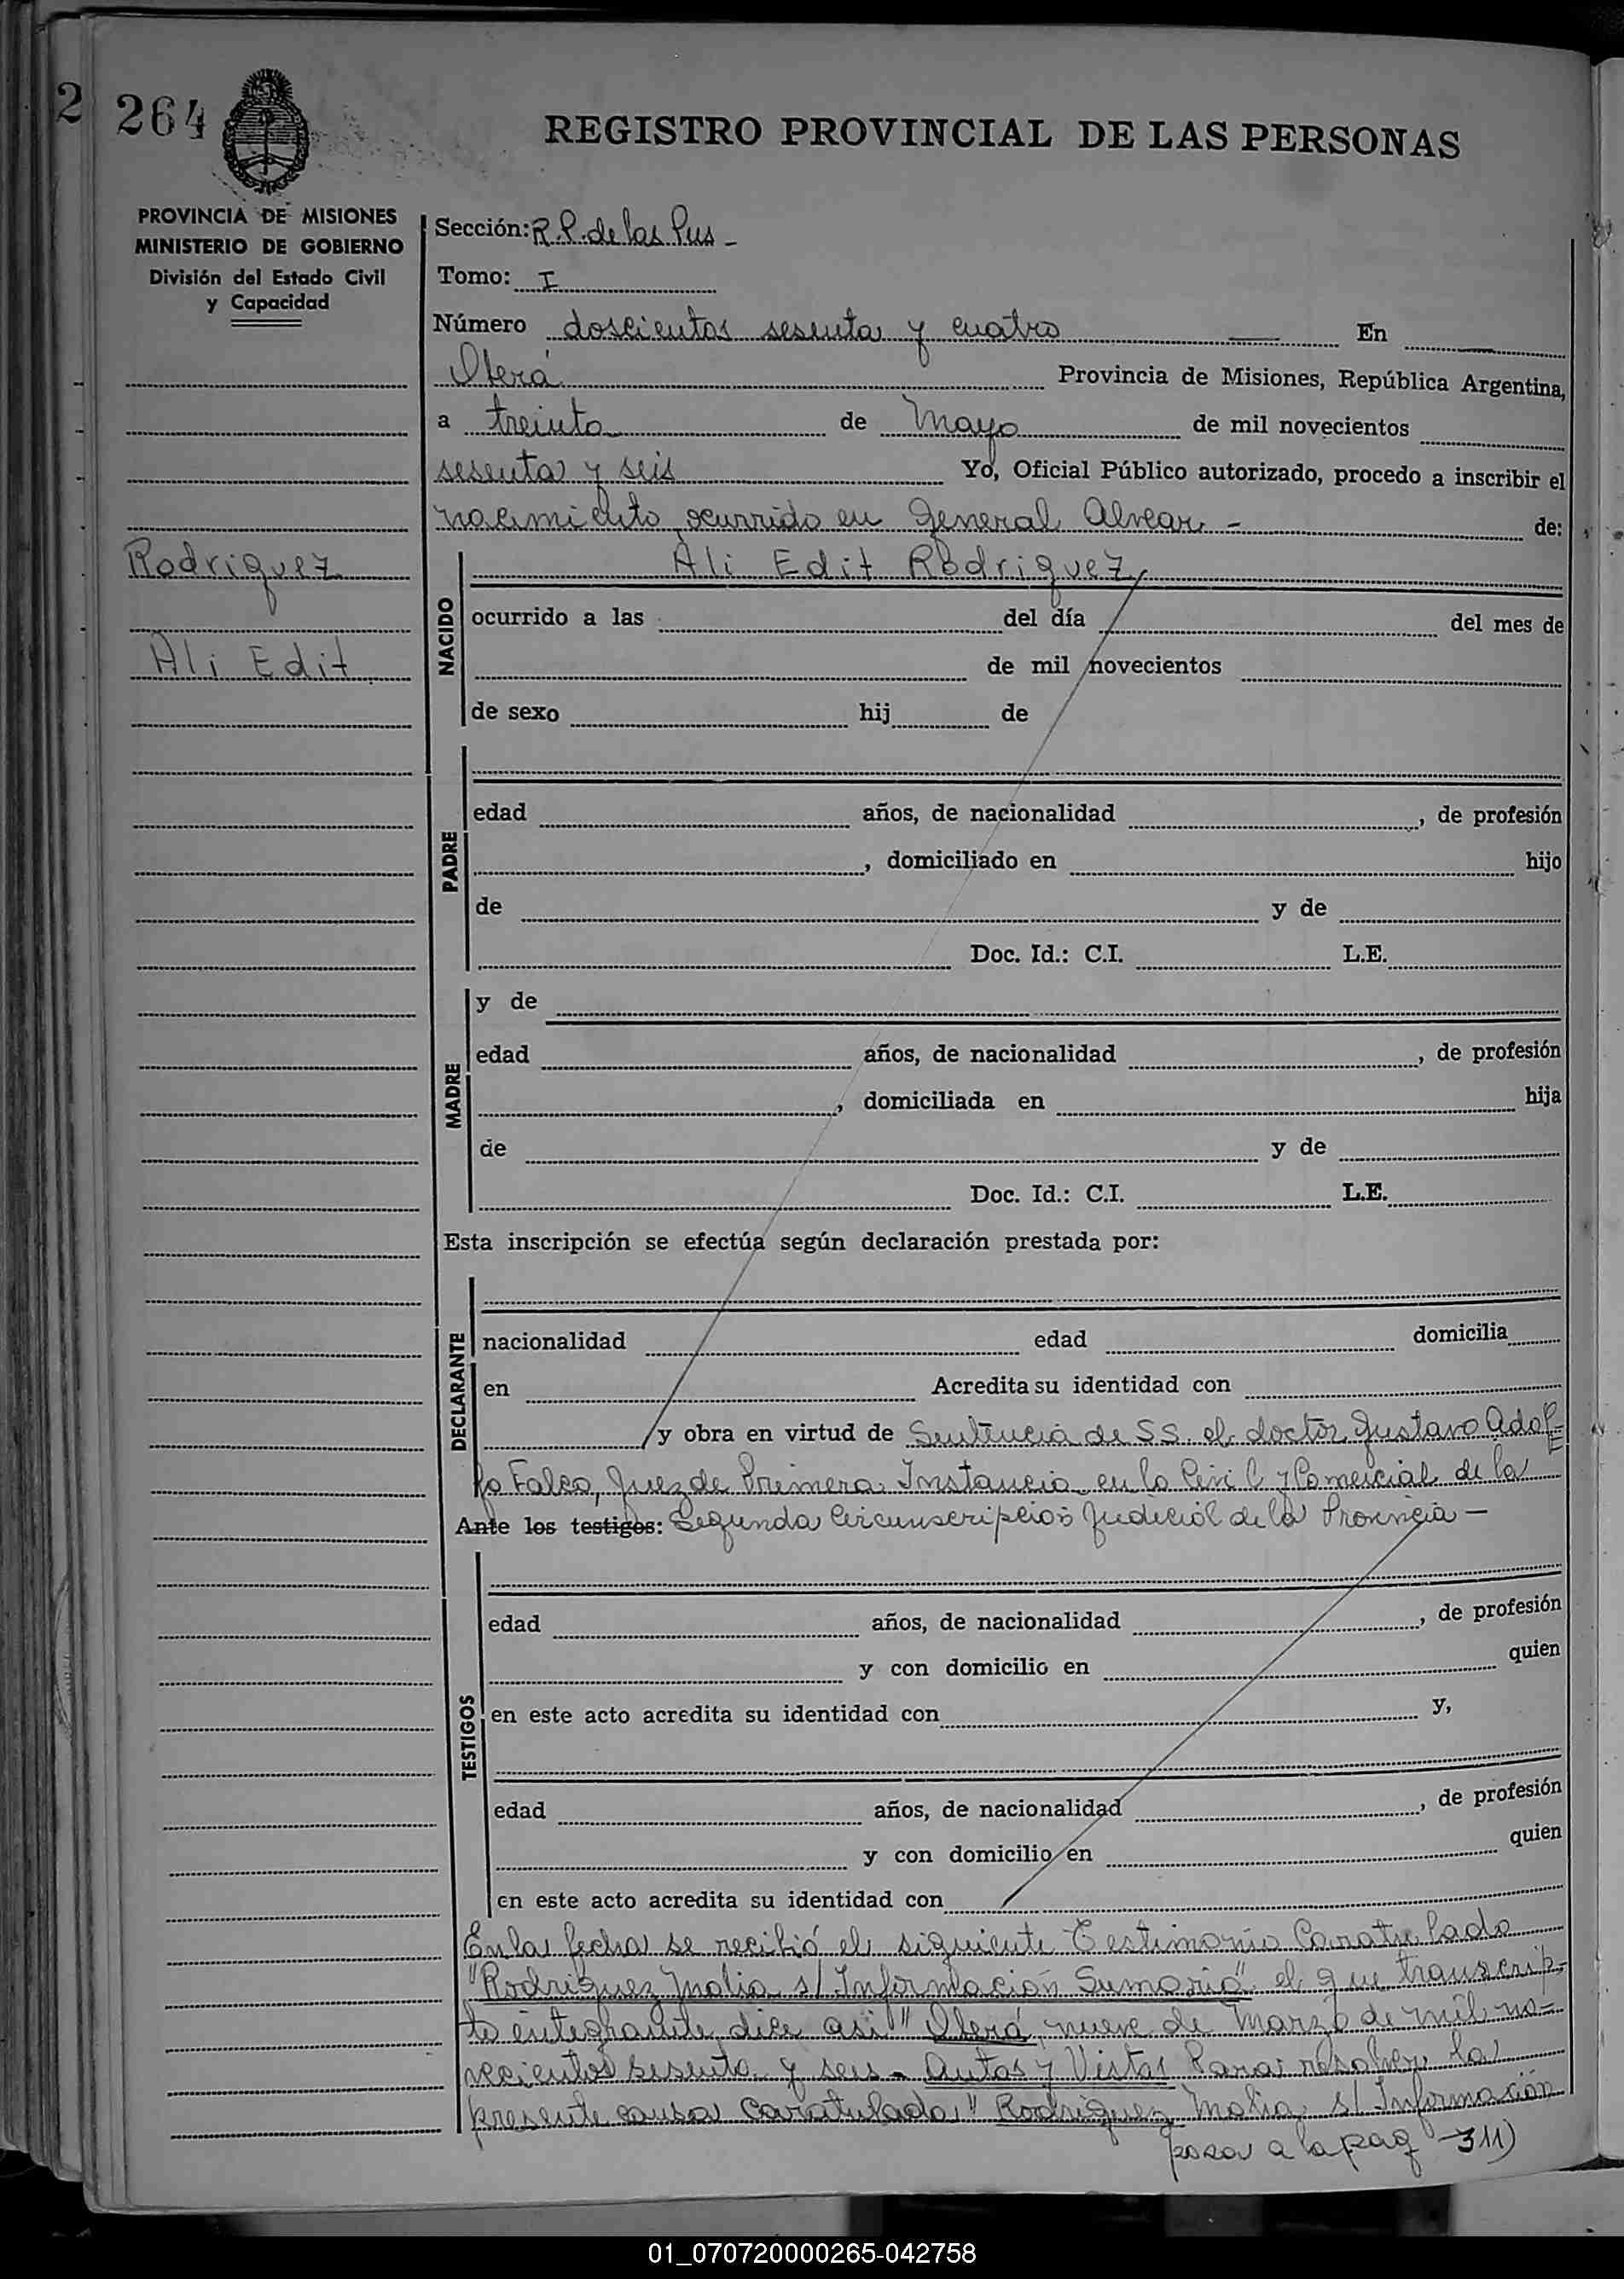 2 264
REGISTRO PROVINCIAL DE LAS PERSONAS
PROVINCIA DE MISIONES
MINISTERIO DE GOBIERNO
División del Estado Civil
y Capacidad
Sección: R.P. de las Pers -
Tomo: I
Número doscientos sesenta y cuatro En
Oberá Provincia de Misiones, República Argentina,
a treinta de Mayo de mil novecientos
sesenta y seis Yo, Oficial Público autorizado, procedo a inscribir el
nacimiento ocurrido en General Alvear - de:
Rodriguez
Ali Edit
NACIDO
Ali Edit Rodriguez
ocurrido a las del día del mes de
de mil novecientos
de sexo hij de
PADRE
edad años, de nacionalidad , de profesión
, domiciliado en hijo
de y de
Doc. Id.: C.I. L.E.
MADRE
y de
edad años, de nacionalidad , de profesión
, domiciliada en hija
de y de
Doc. Id.: C.I. L.E.
Esta inscripción se efectúa según declaración prestada por:
DECLARANTE
nacionalidad edad domicilia
en Acredita su identidad con
y obra en virtud de Sentencia de S.S. el doctor Gustavo Adol-
fo Falco, Juez de Primera Instancia en lo Civil y Comercial de la
Ante los testigos: Segunda Circunscripción Judicial de la Provincia -
TESTIGOS
edad años, de nacionalidad , de profesión
y con domicilio en quien
en este acto acredita su identidad con y,
edad años, de nacionalidad , de profesión
y con domicilio en quien
en este acto acredita su identidad con
En la fecha se recibió el siguiente Testimonio Caratulado
"Rodriguez Malia s/ Información Sumaria" el que transcrip-
to integramente dice asi "Oberá, nueve de Marzo de mil no=
vecientos sesenta y seis - Autos y Vistas Para resolver la
presente causa caratulada "Rodriguez Malia s/ Información
pasa a la pag 311)
01_070720000265-042758